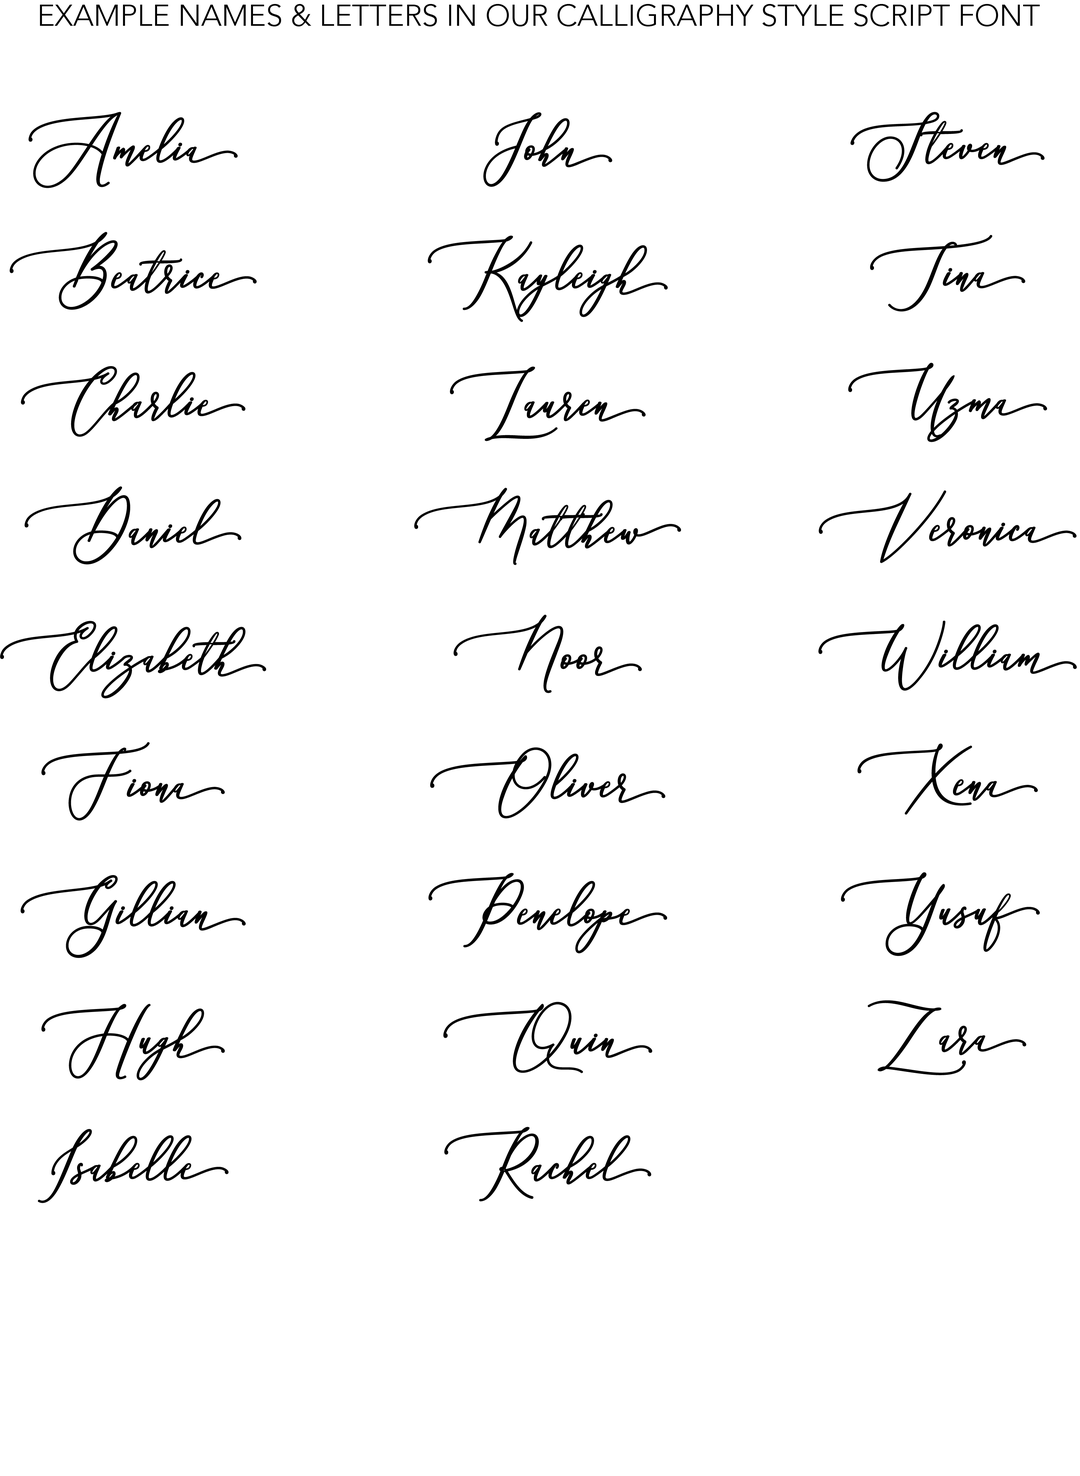 EXAMPLE NAMES & LETTERS IN OUR CALLIGRAPHY STYLE SCRIPT FONT
Amelia
Beatrice
Charlie
Daniel
Elizabeth
Fiona
Gillian
Hugh
Isabelle
John
Kayleigh
Lauren
Matthew
Noor
Oliver
Penelope
Quin
Rachel
Steven
Tina
Uzma
Veronica
William
Xena
Yusuf
Zara